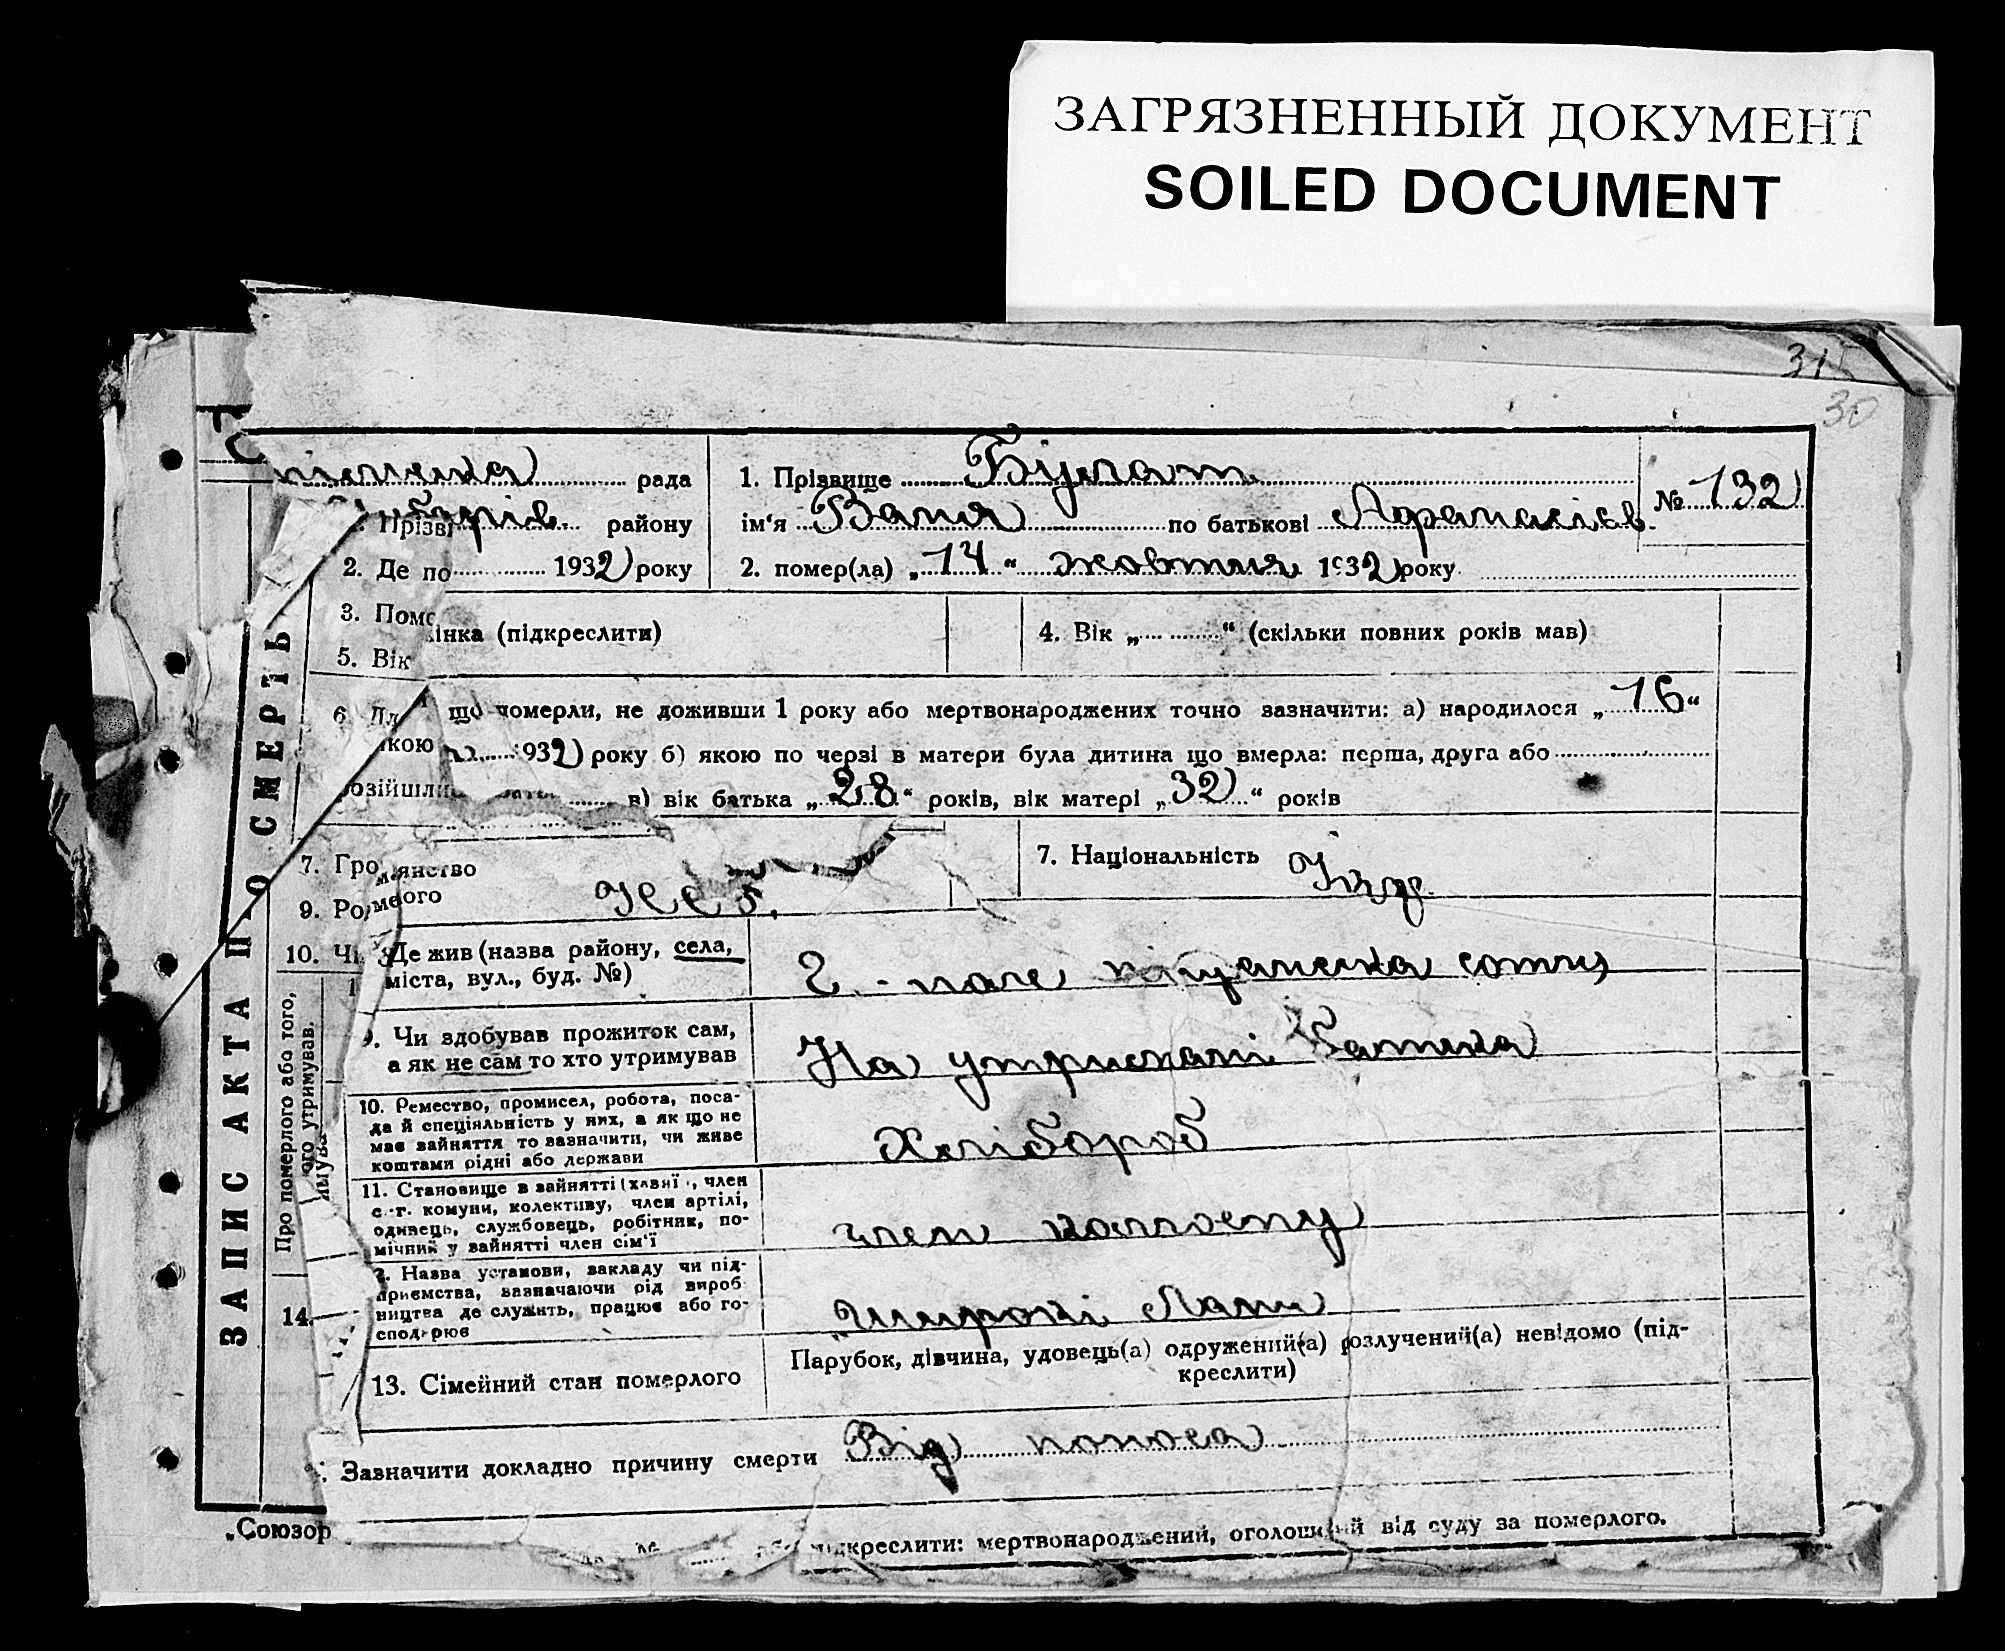 ЗАГРЯЗНЕННЫЙ ДОКУМЕНТ
SOILED DOCUMENT
315
30
рада
1. Прізвище
№ 132
Прізві
району
ім'я Ваня по батькові Афанасієв
2. Де по
1932 року
2. помер(ла) „14“ жовтня 1932 року
3. Пом
інка (підкреслити)
4. Вік „ “ (скільки повних років мав)
5. Вік
6. Дл
що померли, не доживши 1 року або мертвонароджених точно зазначити: а) народилося „16“
кою
932 року б) якою по черзі в матери була дитина що вмерла: перша, друга або
озійшли
в) вік батька „28“ років, вік матері „32“ років
7. Гро
янство
7. Національність
9. Ро
мого
10. Чи
Де жив (назва району, села,
міста, вул., буд. №)
9. Чи здобував прожиток сам,
а як не сам то хто утримував
На утриманні батька
10. Ремество, промисел, робота, поса-
да й спеціяльність у них, а як що не
має зайняття то зазначити, чи живе
коштами рідні або держави
Хлібороб
11. Становище в зайнятті (хазяї , член
с.-г. комуни, колективу, член артілі,
одинець, службовець, робітник, по-
мічний у зайнятті член сім'ї
член колгоспу
2. Назва установи, закладу чи під-
приємства, зазначаючи рід вироб
ництва де служить, працює або го-
сподарює
„Широкі Лани
13. Сімейний стан померлого
Парубок, дівчина, удовець(а) одружений(а) розлучений(а) невідомо (під-
креслити)
14.
Зазначити докладно причину смерти Від поноса
„Союзор
підкреслити: мертвонароджений, оголошений від суду за померлого.
ЗАПИС АКТА ПРО СМЕРТЬ
Про померлого або того,
ого утримував.